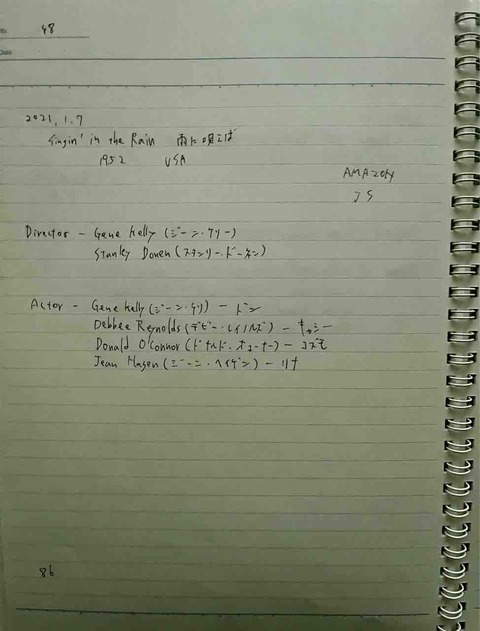 48
2021.1.7
Singin' in the Rain 雨に唄えば
1952 USA
AMAZON
JS
Director - Gene Kelly (ジーン・ケリー)
Stanley Donen (スタンリー・ドーネン)
Actor - Gene Kelly (ジーン・ケリ) - ドン
Debbee Reynolds (デビー・レイノルズ) - キャシー
Donald O'Connor (ドナルド・オコーナー) - コズモ
Jean Hagen (ジーン・ヘイゲン) - リナ
86